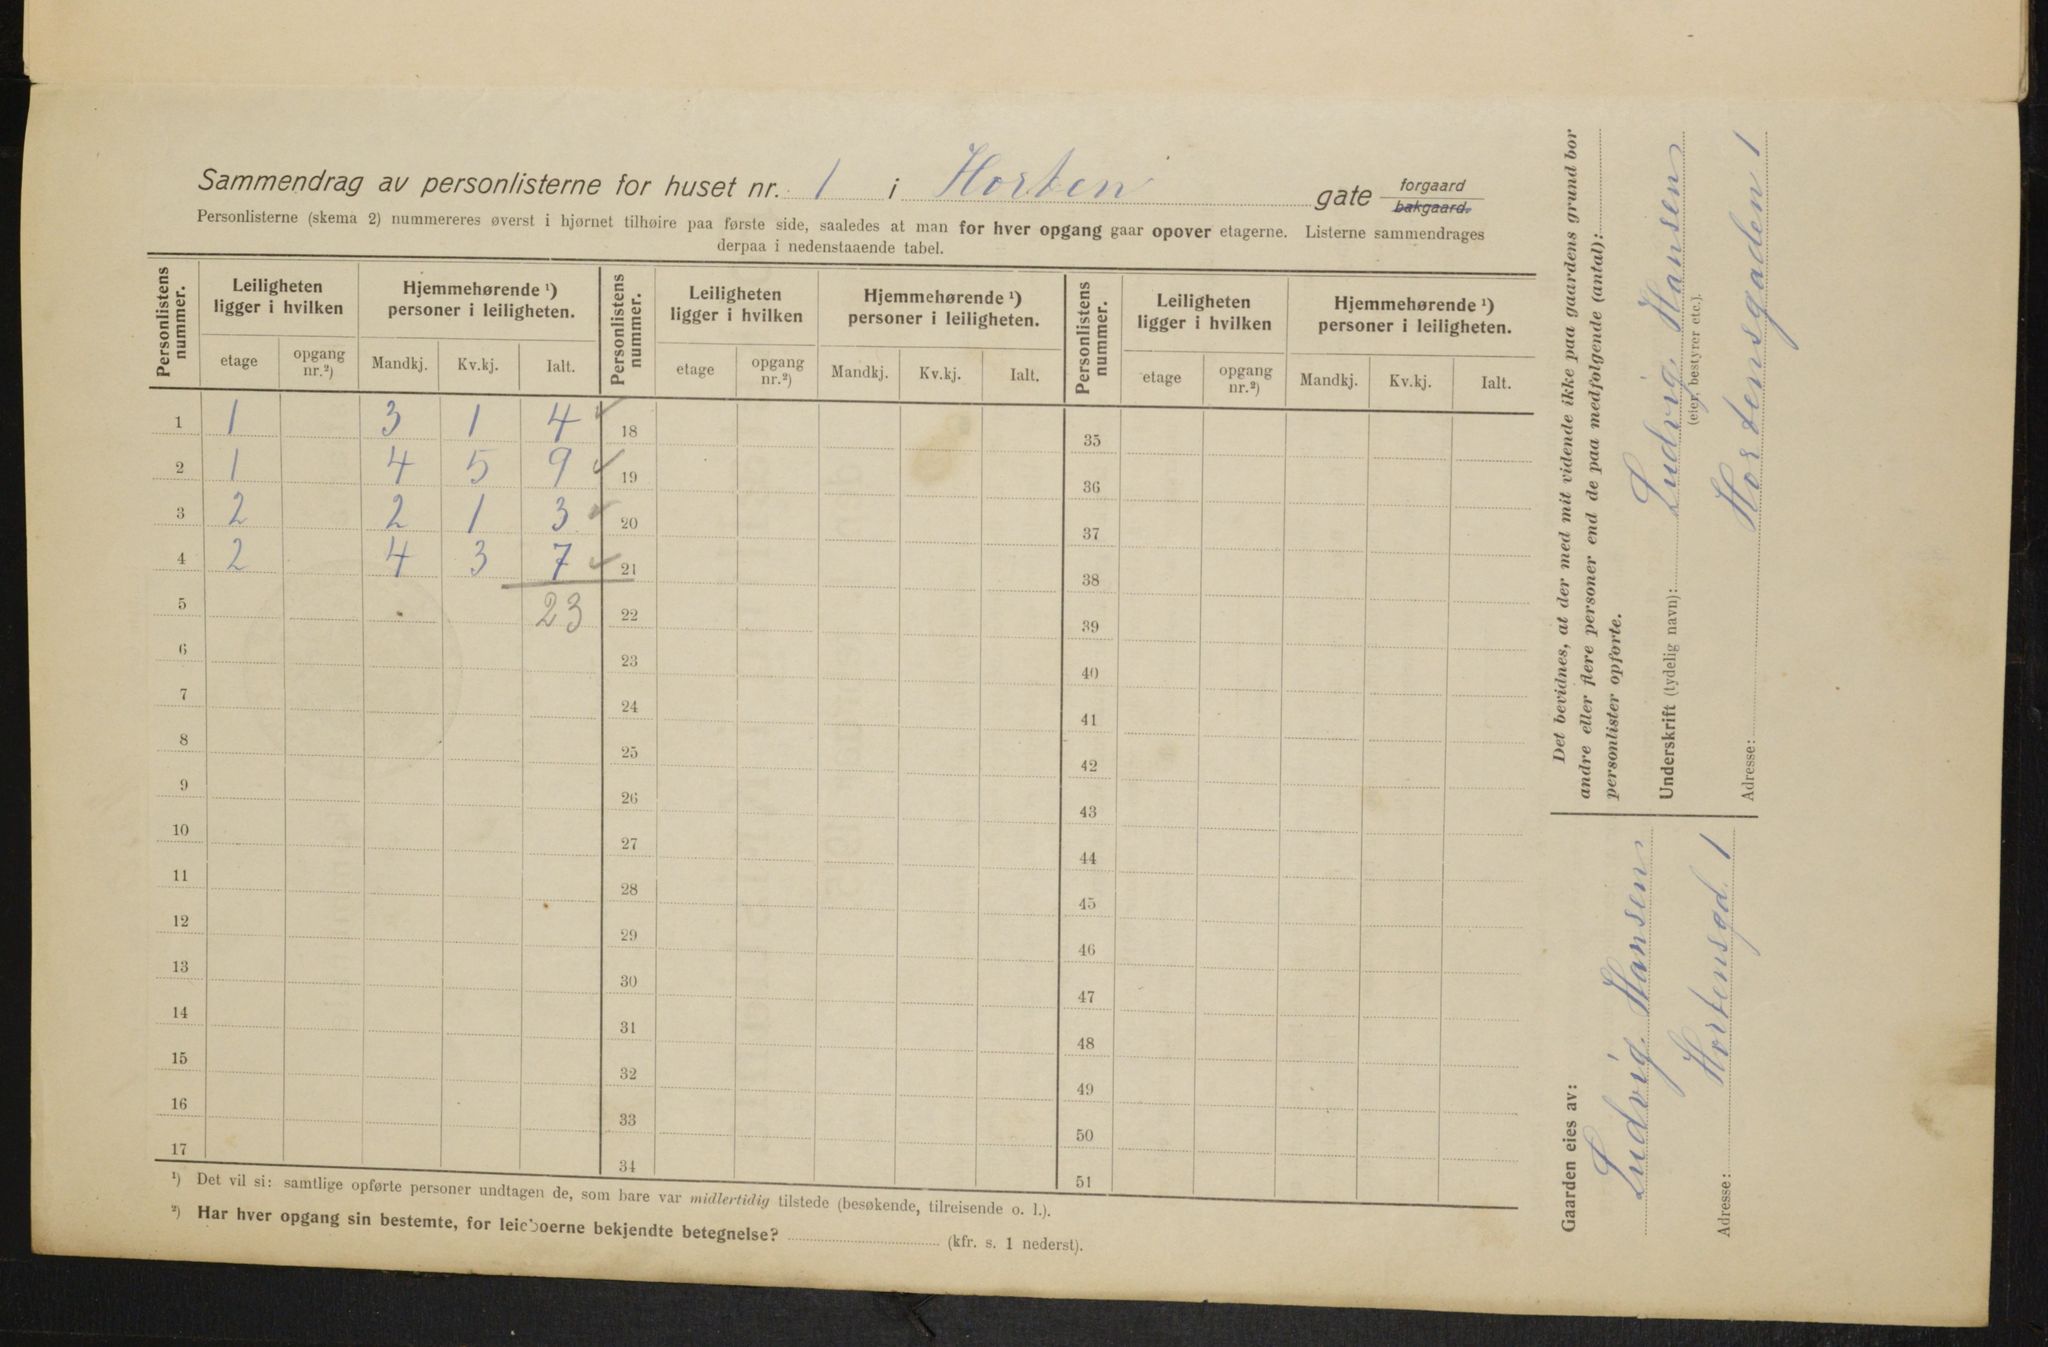 Sammendrag av personlisterne for huset nr. 1 i Horten gate forgaard bakgaard.
Personlisterne (skema 2) nummereres øverst i hjørnet tilhøire paa første side, saaledes at man for hver opgang gaar opover etagerne. Listerne sammendrages
derpaa i nedenstaaende tabel.
Personlistens nummer. Leiligheten ligger i hvilken Hjemmehørende ¹) personer i leiligheten. Personlistens nummer. Leiligheten ligger i hvilken Hjemmehørende ¹) personer i leiligheten. Personlistens nummer. Leiligheten ligger i hvilken Hjemmehørende ¹) personer i leiligheten.
etage opgang nr.²) Mandkj. Kv.kj. Ialt. etage opgang nr.²) Mandkj. Kv.kj. Ialt. etage opgang nr.²) Mandkj. Kv.kj. Ialt.
1 1 3 1 4 ✓ 18 35
2 1 4 5 9 ✓ 19 36
3 2 2 1 3 ✓ 20 37
4 2 4 3 7 ✓ 21 38
5 23 22 39
6 23 40
7 24 41
8 25 42
9 26 43
10 27 44
11 28 45
12 29 46
13 30 47
14 31 48
15 32 49
16 33 50
17 34 51
¹) Det vil si: samtlige opførte personer undtagen de, som bare var midlertidig tilstede (besøkende, tilreisende o. l.).
²) Har hver opgang sin bestemte, for leieboerne bekjendte betegnelse? (kfr. s. 1 nederst).
Det bevidnes, at der med mit vidende ikke paa gaardens grund bor
andre eller flere personer end de paa medfølgende (antal):
personlister opførte.
Underskrift (tydelig navn): Ludvig Hansen
(eier, bestyrer etc.).
Adresse: Hortensgaden 1
Gaarden eies av:
Ludvig Hansen
Adresse: Hortensgd. 1